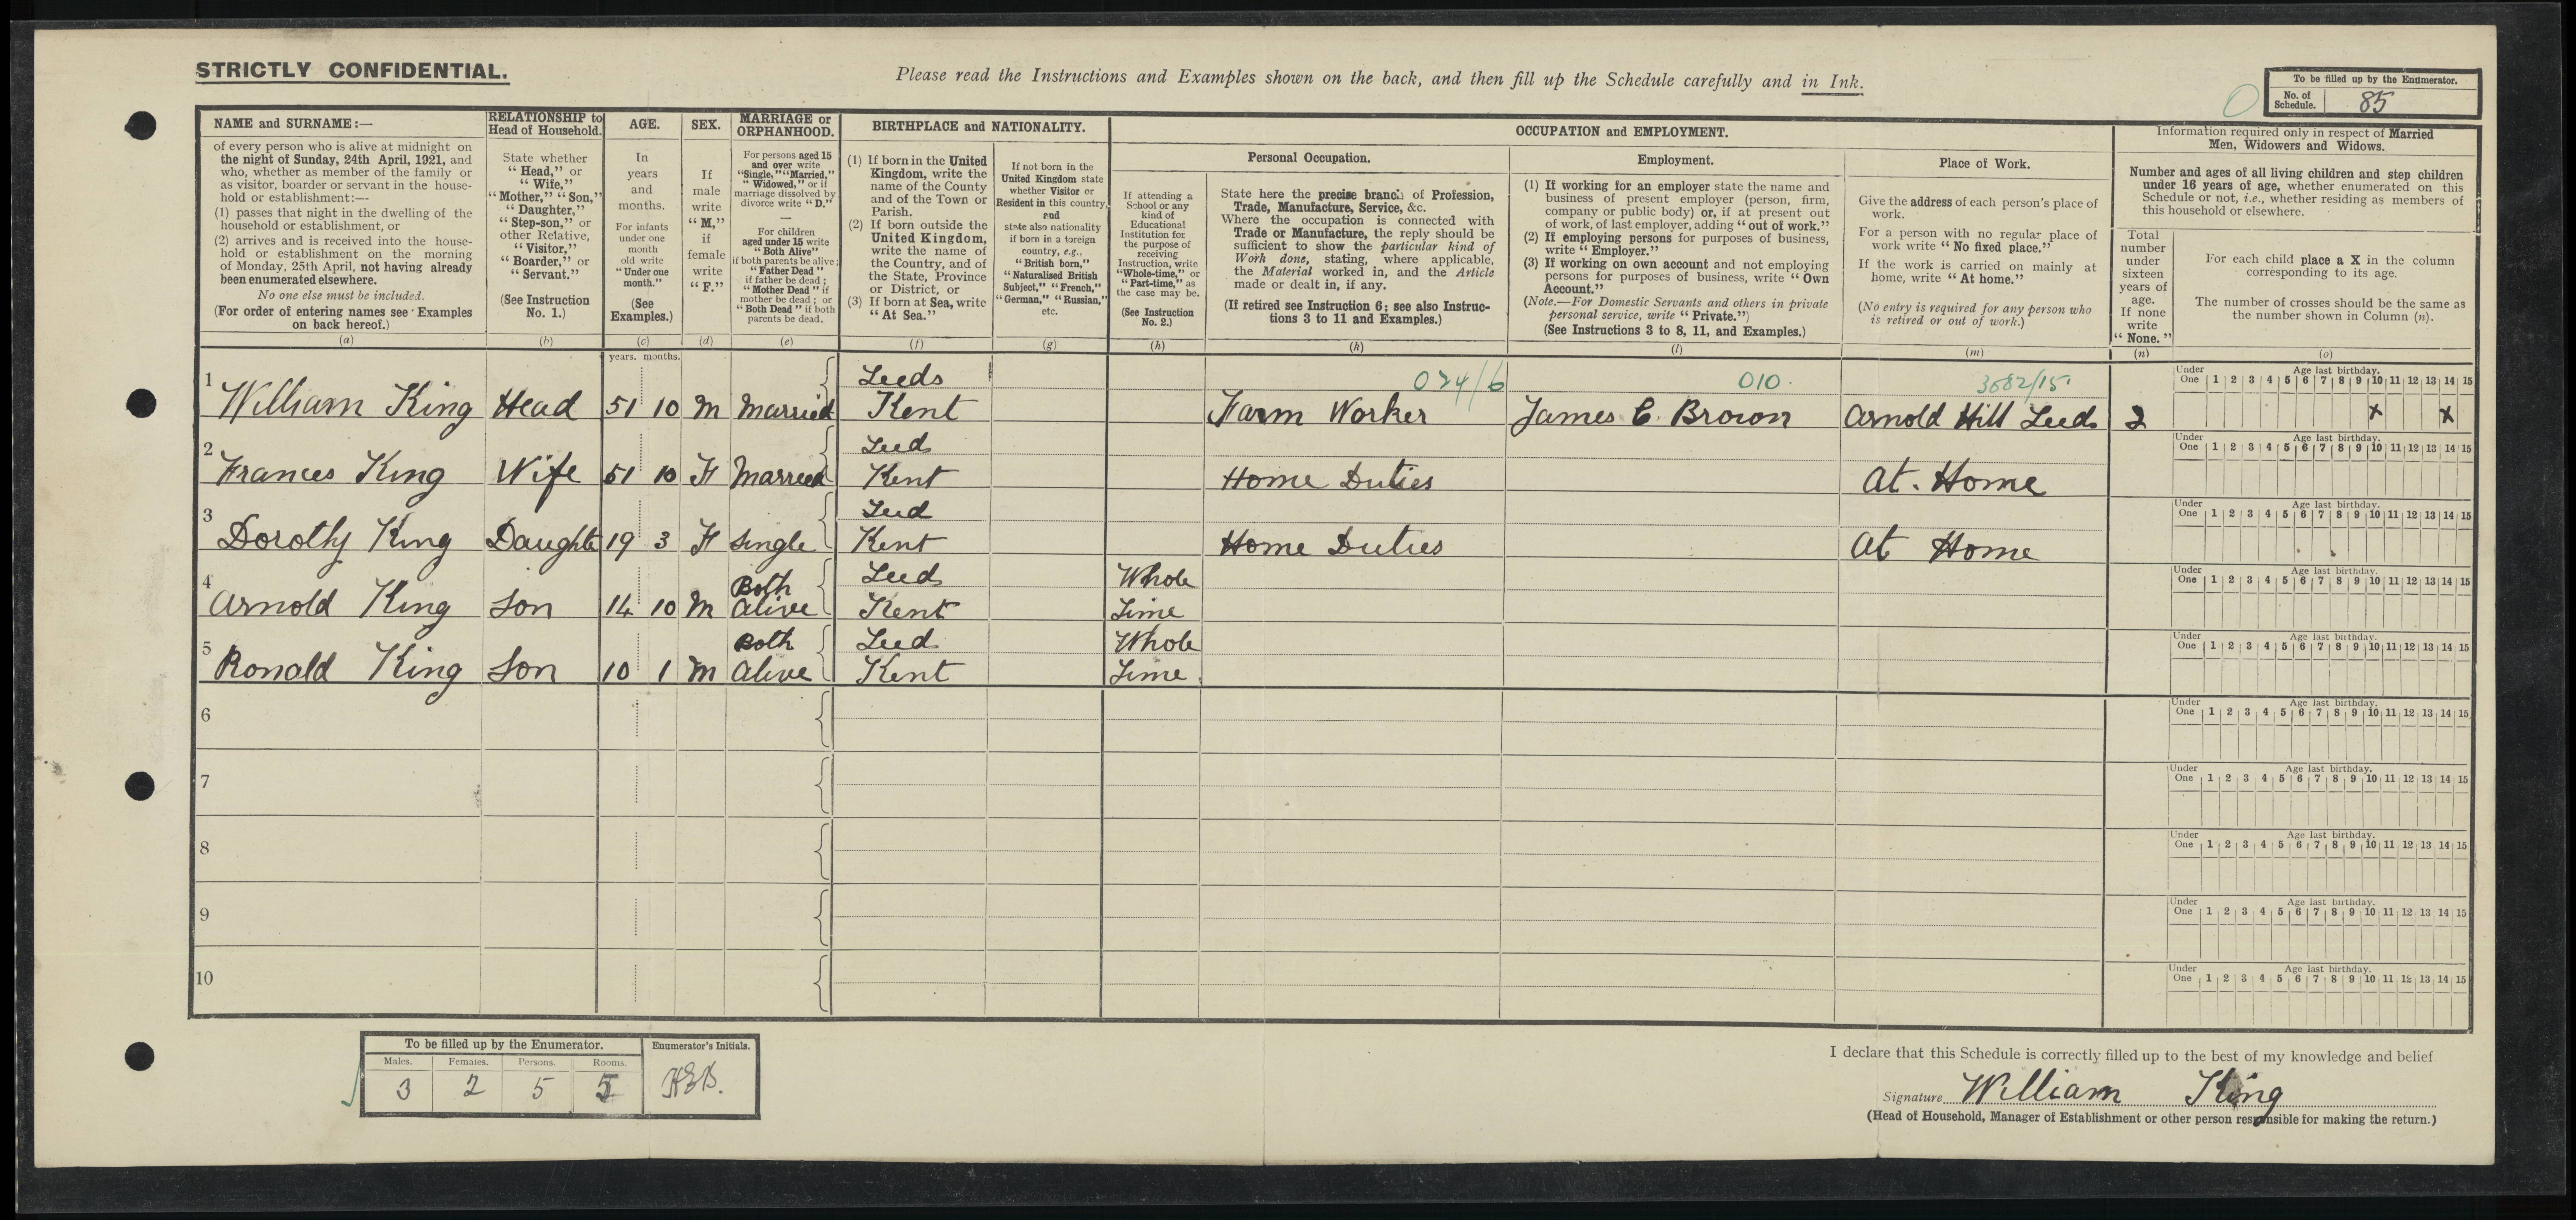 STRICTLY CONFIDENTIAL.
Please read the Instructions and Examples shown on the back, and then fill up the Schedule carefully and in Ink.
To be filled up by the Enumerator.
No. of Schedule. 85
NAME and SURNAME:—
of every person who is alive at midnight on
the night of Sunday, 24th April, 1921, and
who, whether as member of the family or
as visitor, boarder or servant in the house-
hold or establishment:—
(1) passes that night in the dwelling of the
household or establishment, or
(2) arrives and is received into the house-
hold or establishment on the morning
of Monday, 25th April, not having already
been enumerated elsewhere.
No one else must be included.
(For order of entering names see Examples
on back hereof.)
(a)
RELATIONSHIP to
Head of Household.
State whether
"Head," or
"Wife,"
"Mother," "Son,"
"Daughter,"
"Step-son," or
other Relative,
"Visitor,"
"Boarder," or
"Servant."
(See Instruction
No. 1.)
(b)
AGE.
In
years
and
months.
For infants
under one
month
old write
"Under one
month."
(See
Examples.)
(c)
SEX.
If
male
write
"M,"
if
female
write
"F."
(d)
MARRIAGE or
ORPHANHOOD.
For persons aged 15
and over write
"Single," "Married,"
"Widowed," or if
marriage dissolved by
divorce write "D."
—
For children
aged under 15 write
"Both Alive"
if both parents be alive;
"Father Dead"
if father be dead;
"Mother Dead" if
mother be dead; or
"Both Dead" if both
parents be dead.
(e)
BIRTHPLACE and NATIONALITY.
(1) If born in the United
Kingdom, write the
name of the County
and of the Town or
Parish.
(2) If born outside the
United Kingdom,
write the name of
the Country, and of
the State, Province
or District, or
(3) If born at Sea, write
"At Sea."
(f)
If not born in the
United Kingdom state
whether Visitor or
Resident in this country,
and
state also nationality
if born in a foreign
country, e.g.,
"British born,"
"Naturalised British
Subject," "French,"
"German," "Russian,"
etc.
(g)
OCCUPATION and EMPLOYMENT.
If attending a
School or any
kind of
Educational
Institution for
the purpose of
receiving
Instruction, write
"Whole-time," or
"Part-time," as
the case may be.
(See Instruction
No. 2.)
(h)
Personal Occupation.
State here the precise branch of Profession,
Trade, Manufacture, Service, &c.
Where the occupation is connected with
Trade or Manufacture, the reply should be
sufficient to show the particular kind of
Work done, stating, where applicable,
the Material worked in, and the Article
made or dealt in, if any.
(If retired see Instruction 6; see also Instruc-
tions 3 to 11 and Examples.)
(k)
Employment.
(1) If working for an employer state the name and
business of present employer (person, firm,
company or public body) or, if at present out
of work, of last employer, adding "out of work."
(2) If employing persons for purposes of business,
write "Employer."
(3) If working on own account and not employing
persons for purposes of business, write "Own
Account."
(Note.—For Domestic Servants and others in private
personal service, write "Private.")
(See Instructions 3 to 8, 11, and Examples.)
(l)
Place of Work.
Give the address of each person's place of
work.
For a person with no regular place of
work write "No fixed place."
If the work is carried on mainly at
home, write "At home."
(No entry is required for any person who
is retired or out of work.)
(m)
Information required only in respect of Married
Men, Widowers and Widows.
Number and ages of all living children and step children
under 16 years of age, whether enumerated on this
Schedule or not, i.e., whether residing as members of
this household or elsewhere.
Total
number
under
sixteen
years of
age.
If none
write
"None."
(n)
For each child place a X in the column
corresponding to its age.
The number of crosses should be the same as
the number shown in Column (n).
(o)
years. months.
Leeds 074/6 010. 3682/15
1 William King Head 51 10 M Married Kent Farm Worker James C. Brown Arnold Hill Leeds 2
Under One 1 2 3 4 5 6 7 8 9 10 11 12 13 14 15 Age last birthday.
x x
Leed
2 Frances King Wife 51 10 F Married Kent Home Duties At. Home
Under One 1 2 3 4 5 6 7 8 9 10 11 12 13 14 15 Age last birthday.
Leed
3 Dorothy King Daughte 19 3 F Single Kent Home Duties At Home
Under One 1 2 3 4 5 6 7 8 9 10 11 12 13 14 15 Age last birthday.
Both Leed Whole
4 Arnold King Son 14 10 M Alive Kent Time
Under One 1 2 3 4 5 6 7 8 9 10 11 12 13 14 15 Age last birthday.
Both Leed Whole
5 Ronald King Son 10 1 M Alive Kent Time
Under One 1 2 3 4 5 6 7 8 9 10 11 12 13 14 15 Age last birthday.
6
Under One 1 2 3 4 5 6 7 8 9 10 11 12 13 14 15 Age last birthday.
7
Under One 1 2 3 4 5 6 7 8 9 10 11 12 13 14 15 Age last birthday.
8
Under One 1 2 3 4 5 6 7 8 9 10 11 12 13 14 15 Age last birthday.
9
Under One 1 2 3 4 5 6 7 8 9 10 11 12 13 14 15 Age last birthday.
10
Under One 1 2 3 4 5 6 7 8 9 10 11 12 13 14 15 Age last birthday.
To be filled up by the Enumerator. Enumerator's Initials.
Males. Females. Persons. Rooms.
3 2 5 5 HEB.
I declare that this Schedule is correctly filled up to the best of my knowledge and belief
Signature William King
(Head of Household, Manager of Establishment or other person responsible for making the return.)